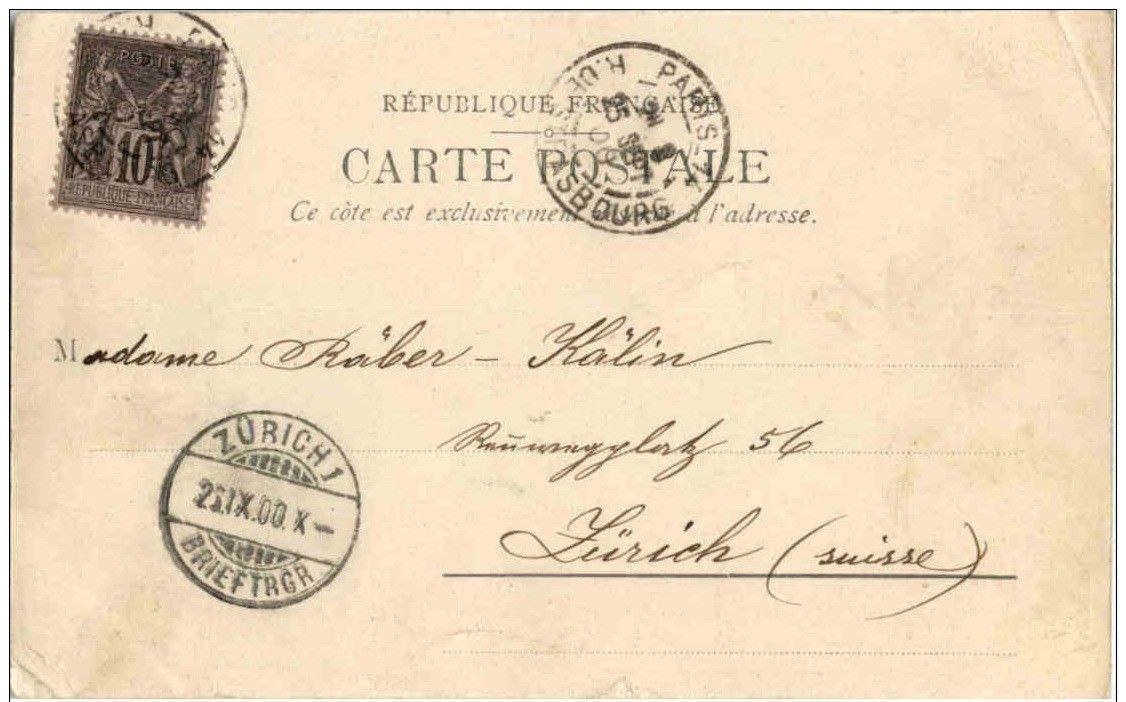 POSTE
10
RÉPUBLIQUE FRANÇAISE
RÉPUBLIQUE FRANÇAISE
CARTE POSTALE
Ce côté est exclusivement à l'adresse.
PARIS
Madame Räber - Kälin
56
Zürich (suisse)
ZÜRICH 1
IX.00. X-
BRIEFTRGR